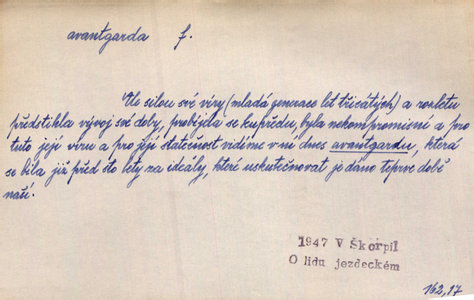 avantgarda f.
Ta silou své víry (mladá generace let třicátých) a rozletu
předstihla vývoj své doby, probíjela se kupředu, byla nekompromisní a pro
tuto její víru a pro její statečnost vidíme v ní dnes avantgardu, která
se bila již před sto lety za ideály, které uskutečňovat je dáno teprve době
naší.
1947 V Škorpil
O lidu jezdeckém
162,17